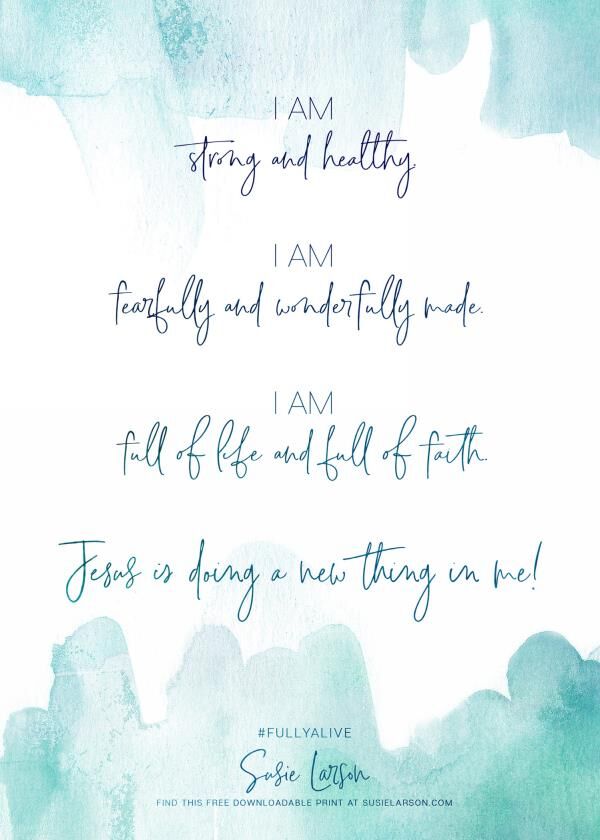 I AM
strong and healthy.
I AM
fearfully and wonderfully made.
I AM
full of life and full of faith.
Jesus is doing a new thing in me!
#FULLYALIVE
Susie Larson
FIND THIS FREE DOWNLOADABLE PRINT AT SUSIELARSON.COM